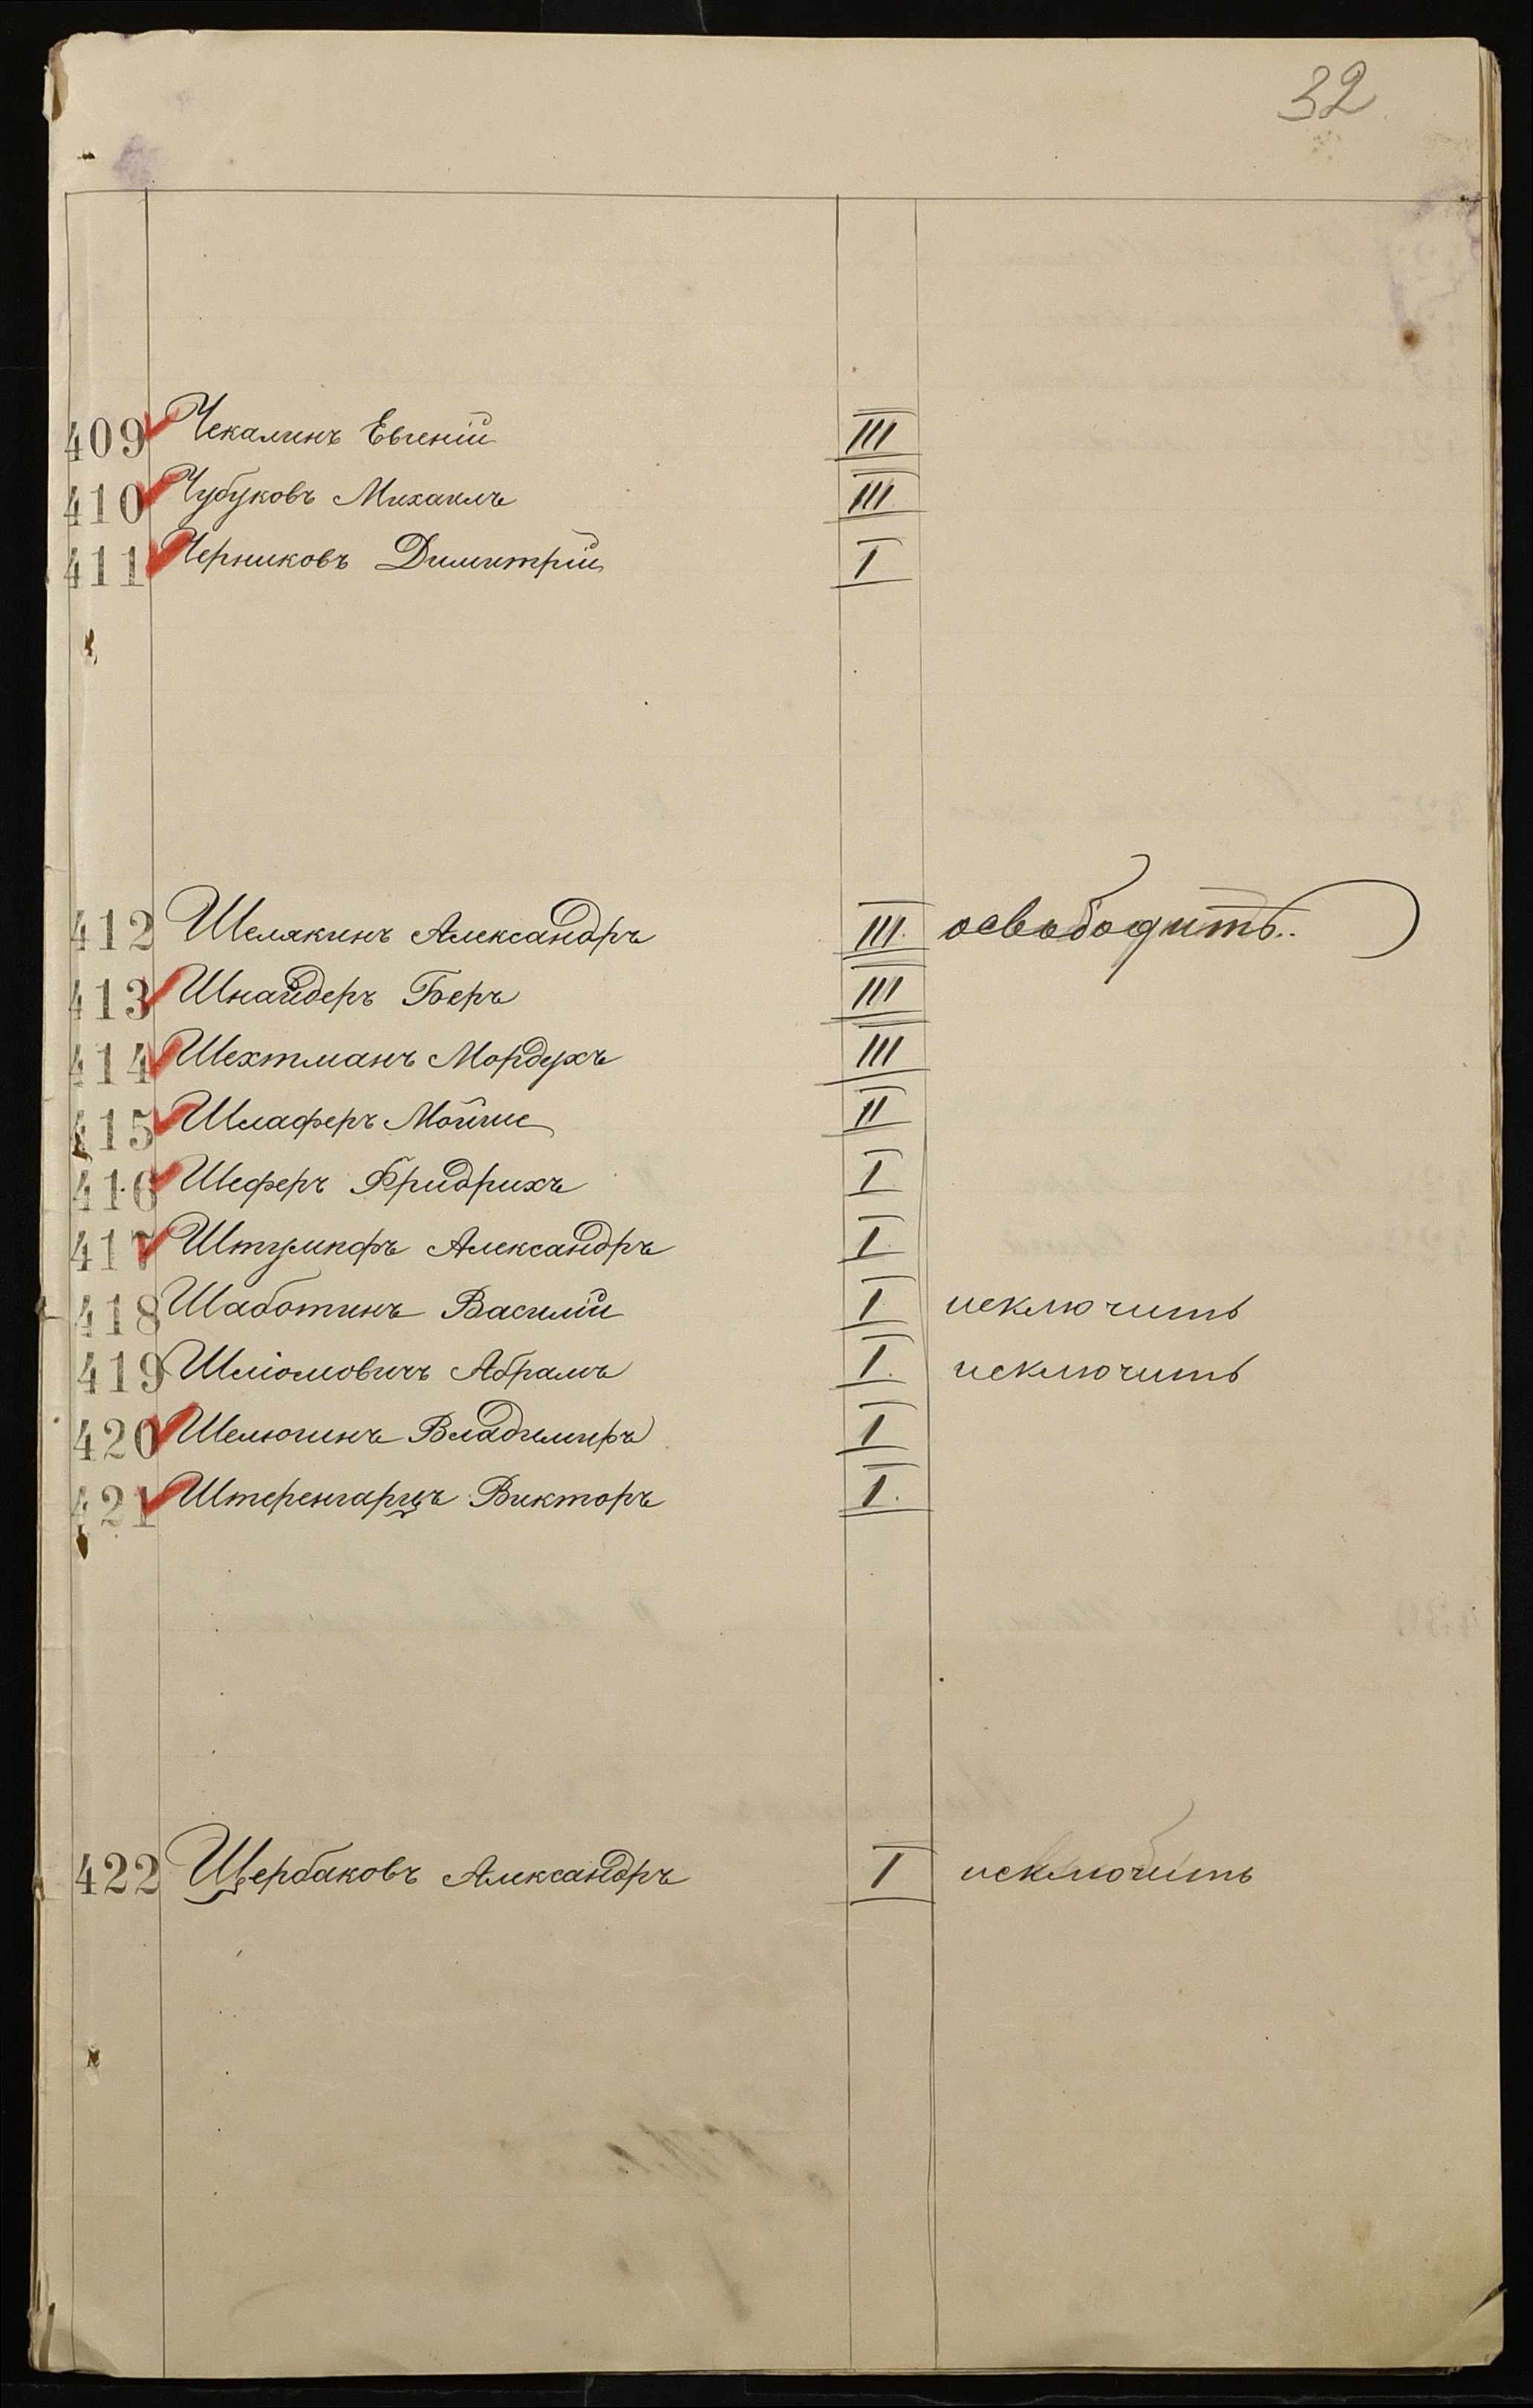 32
409 Чекалинъ Евгеній III
410 Чубуковъ Михаилъ III
411 Черниковъ Димитрій I
412 Шелякинъ Александръ III. освободить.
413 Шнайдеръ Беръ III
414 Шехтманъ Мордухъ III
415 Шлаферъ Мойше II
416 Шеферъ Фридрихъ I
417 Штумпфъ Александръ I.
418 Шаботинъ Василій I. исключить
419 Шліомовичъ Абрамъ I. исключить
420 Шелюгинъ Владимиръ I
421 Штеренгарцъ Викторъ I.
422 Щербаковъ Александръ I исключить